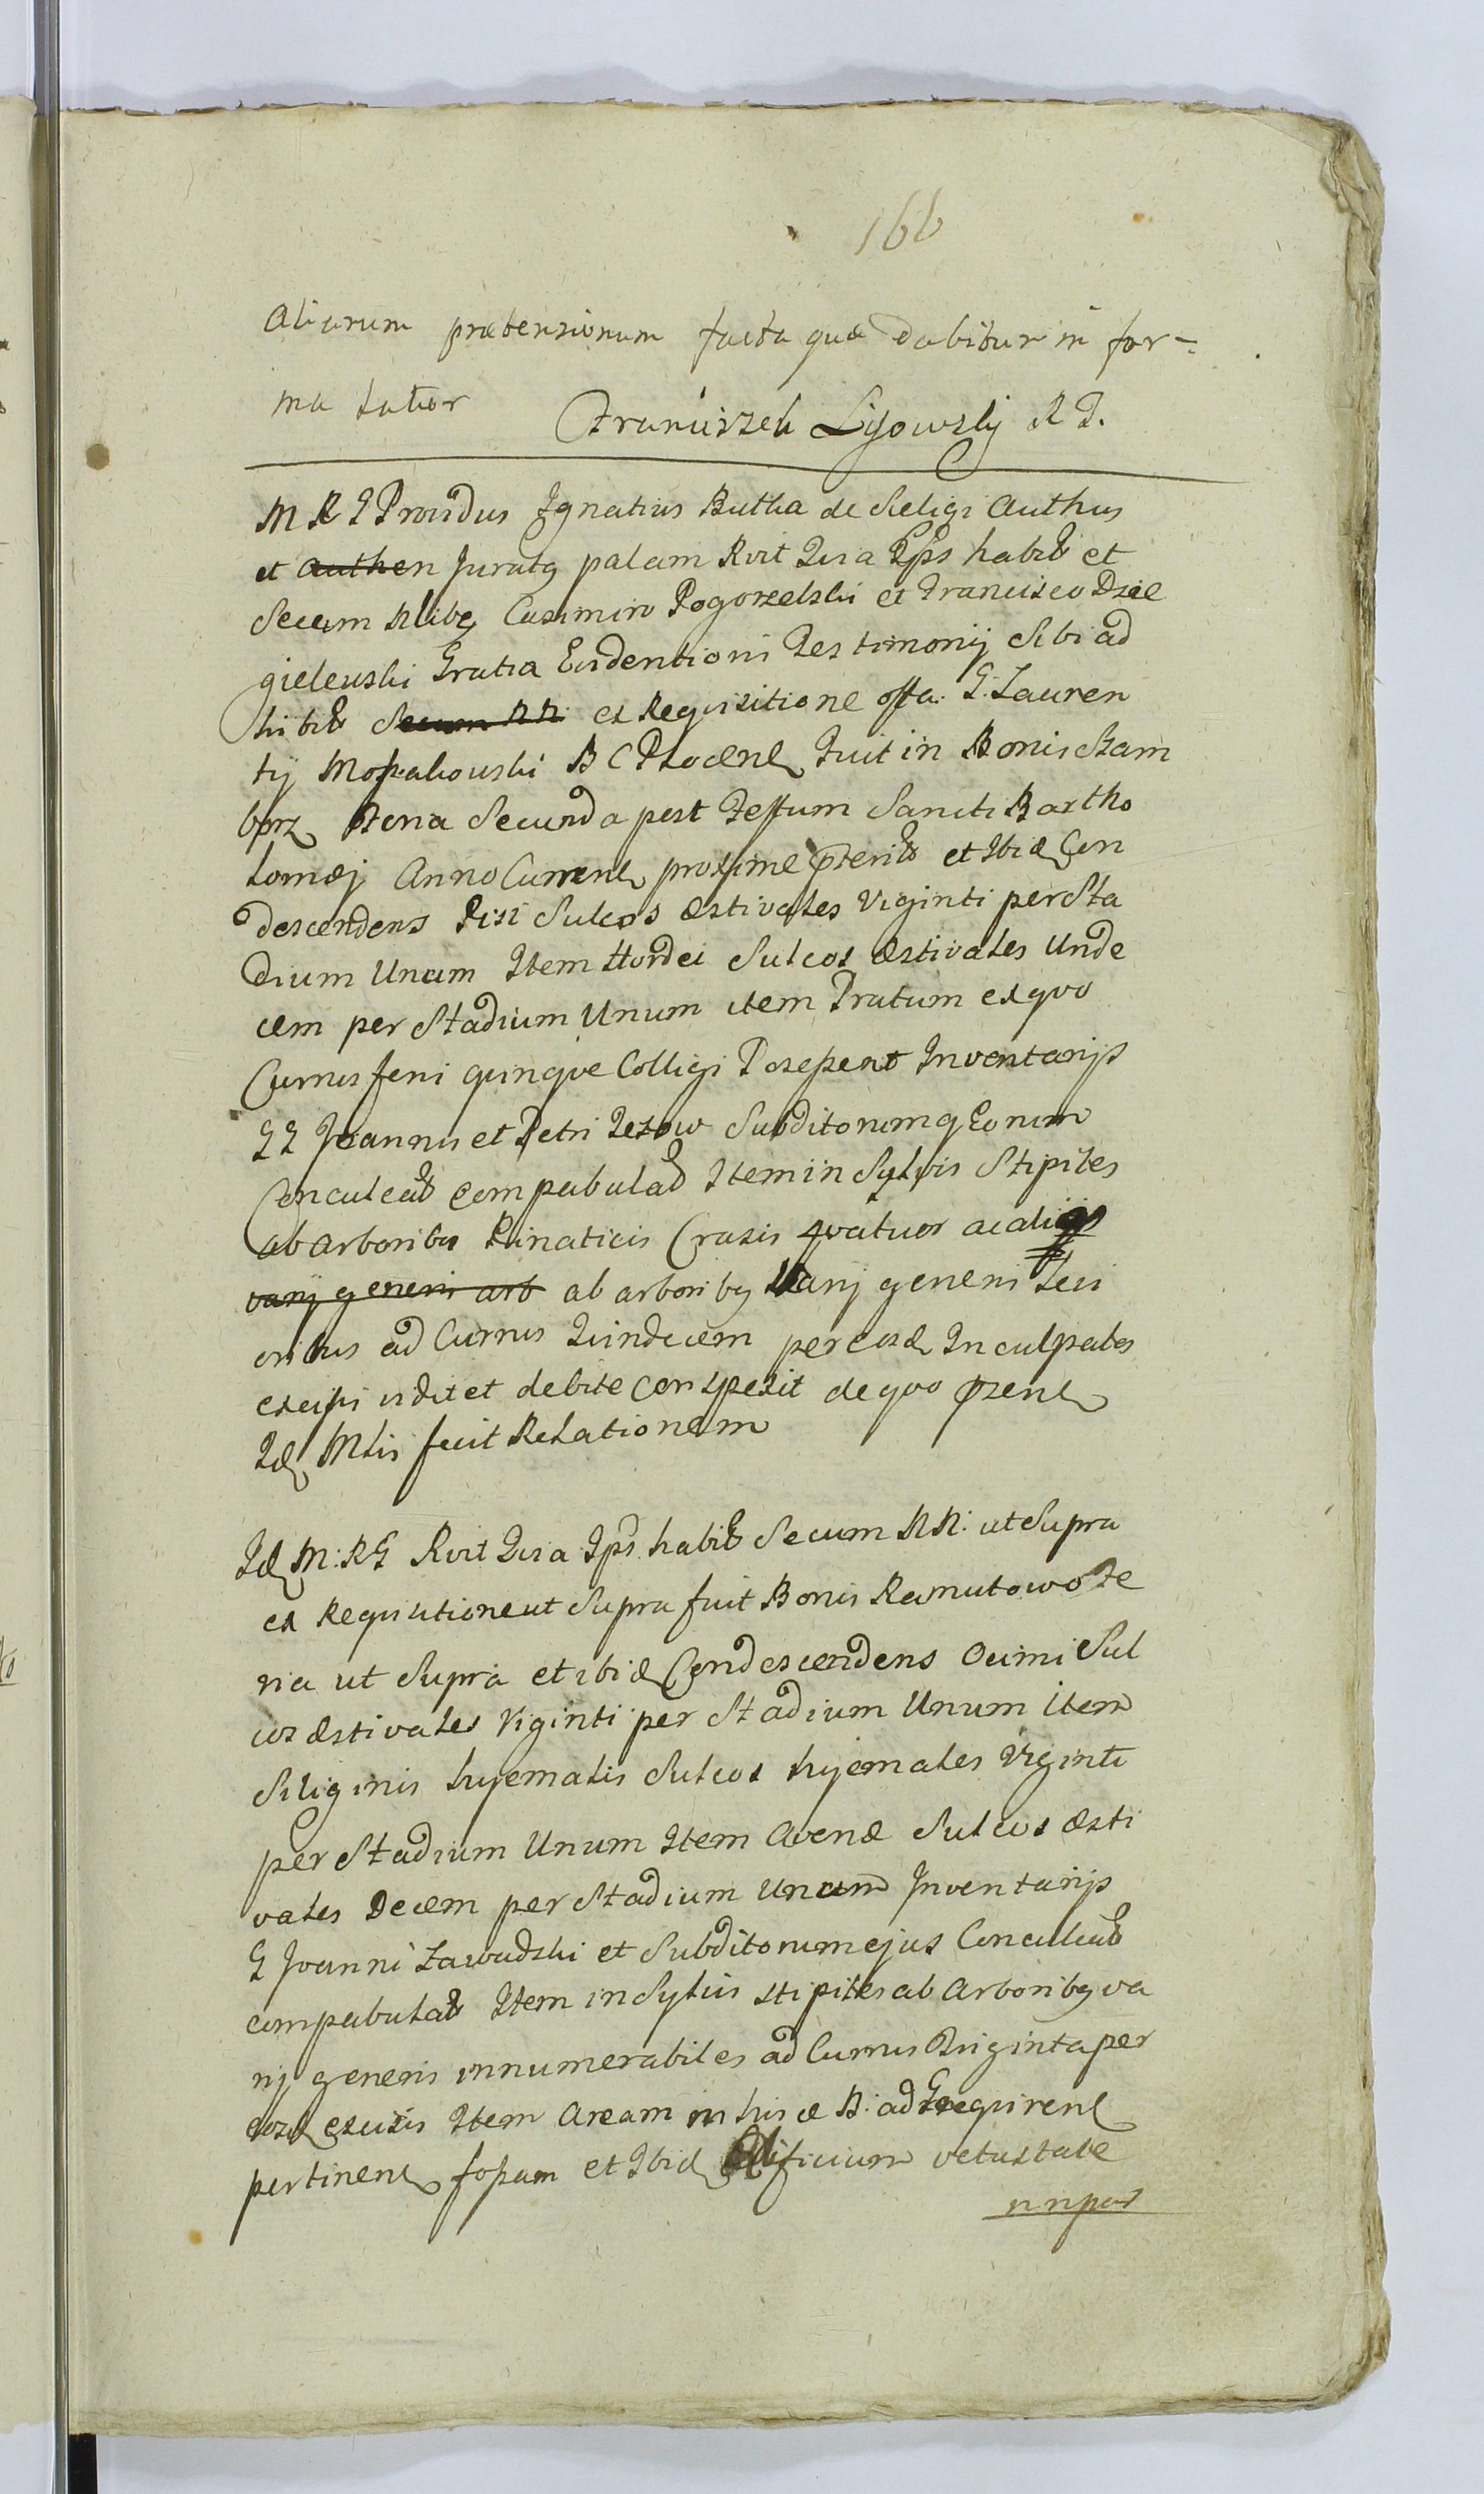 166
aliarum prætensionum facta quæ dabitur in for-
ma latior Franciszek Lisowsky R T.
M R G Providus Ignatius Butka de Seligi Authus
et authen Juratq palam Rvit Quia Ips habit et
Secum Nlibq Casimiro Pogorzelski et Francisco Dziel
gielewski Gratia Evidentioris Testimonij Sibi ad
hibit Secum NN ex Requisitione offa. G. Lauren
ty Mossakowski B C Plocenẽ fuit in Bonis Szam
borz Feria Secunda post Festum Sancti Bartho
lomæj Anno Curren proxime pterit et Ibid Con
descendens Pisi Sulcos æstivales Viginti per Sta
dium Unum Item Hordei Sulcos æstivales Unde
cem per Stadium Unum item Pratum ex quo
Currus feni quinque Colligi Potessent Inventarijs
G G Joannis et Petri Jezow Subditorumq Eorum
Conculcat Compabulat Item in Sylvis Stipites
ab arboribus Pinaticis Crasis quatuor ac alijs
varij generis arb ab arboribq Varij generis Levi
oribus ad Currus Quindecem per eosd Inculpatos
excissi vidit et debite Conspexit de quo pzens
Id Mlis fecit Relationem
Id M: R G Rvit Quia Ips habit Secum NN: ut Supra
ex Requisitione ut Supra fuit Bonis Ramutowo Fe
ria ut Supra et ibid Condescendens Ocimi Sul
cos æstivales Viginti per Stadium Unum item
Siliginis hyemalis Sulcos hyemales Viginti
per Stadium Unum Item Avenæ Sulcos æsti
vales Decem per Stadium Unum Inventarijs
G Joanni Zawadzki et Subditorum ejus Conculcat
compabulat Item in Sylvis stipites ab Arboribq va
rij generis innumerabiles ad Currus Triginta per
eosd excisis Item Aream in hisce B: ad
pertinen fossam et Ibid Ædificium vetustate